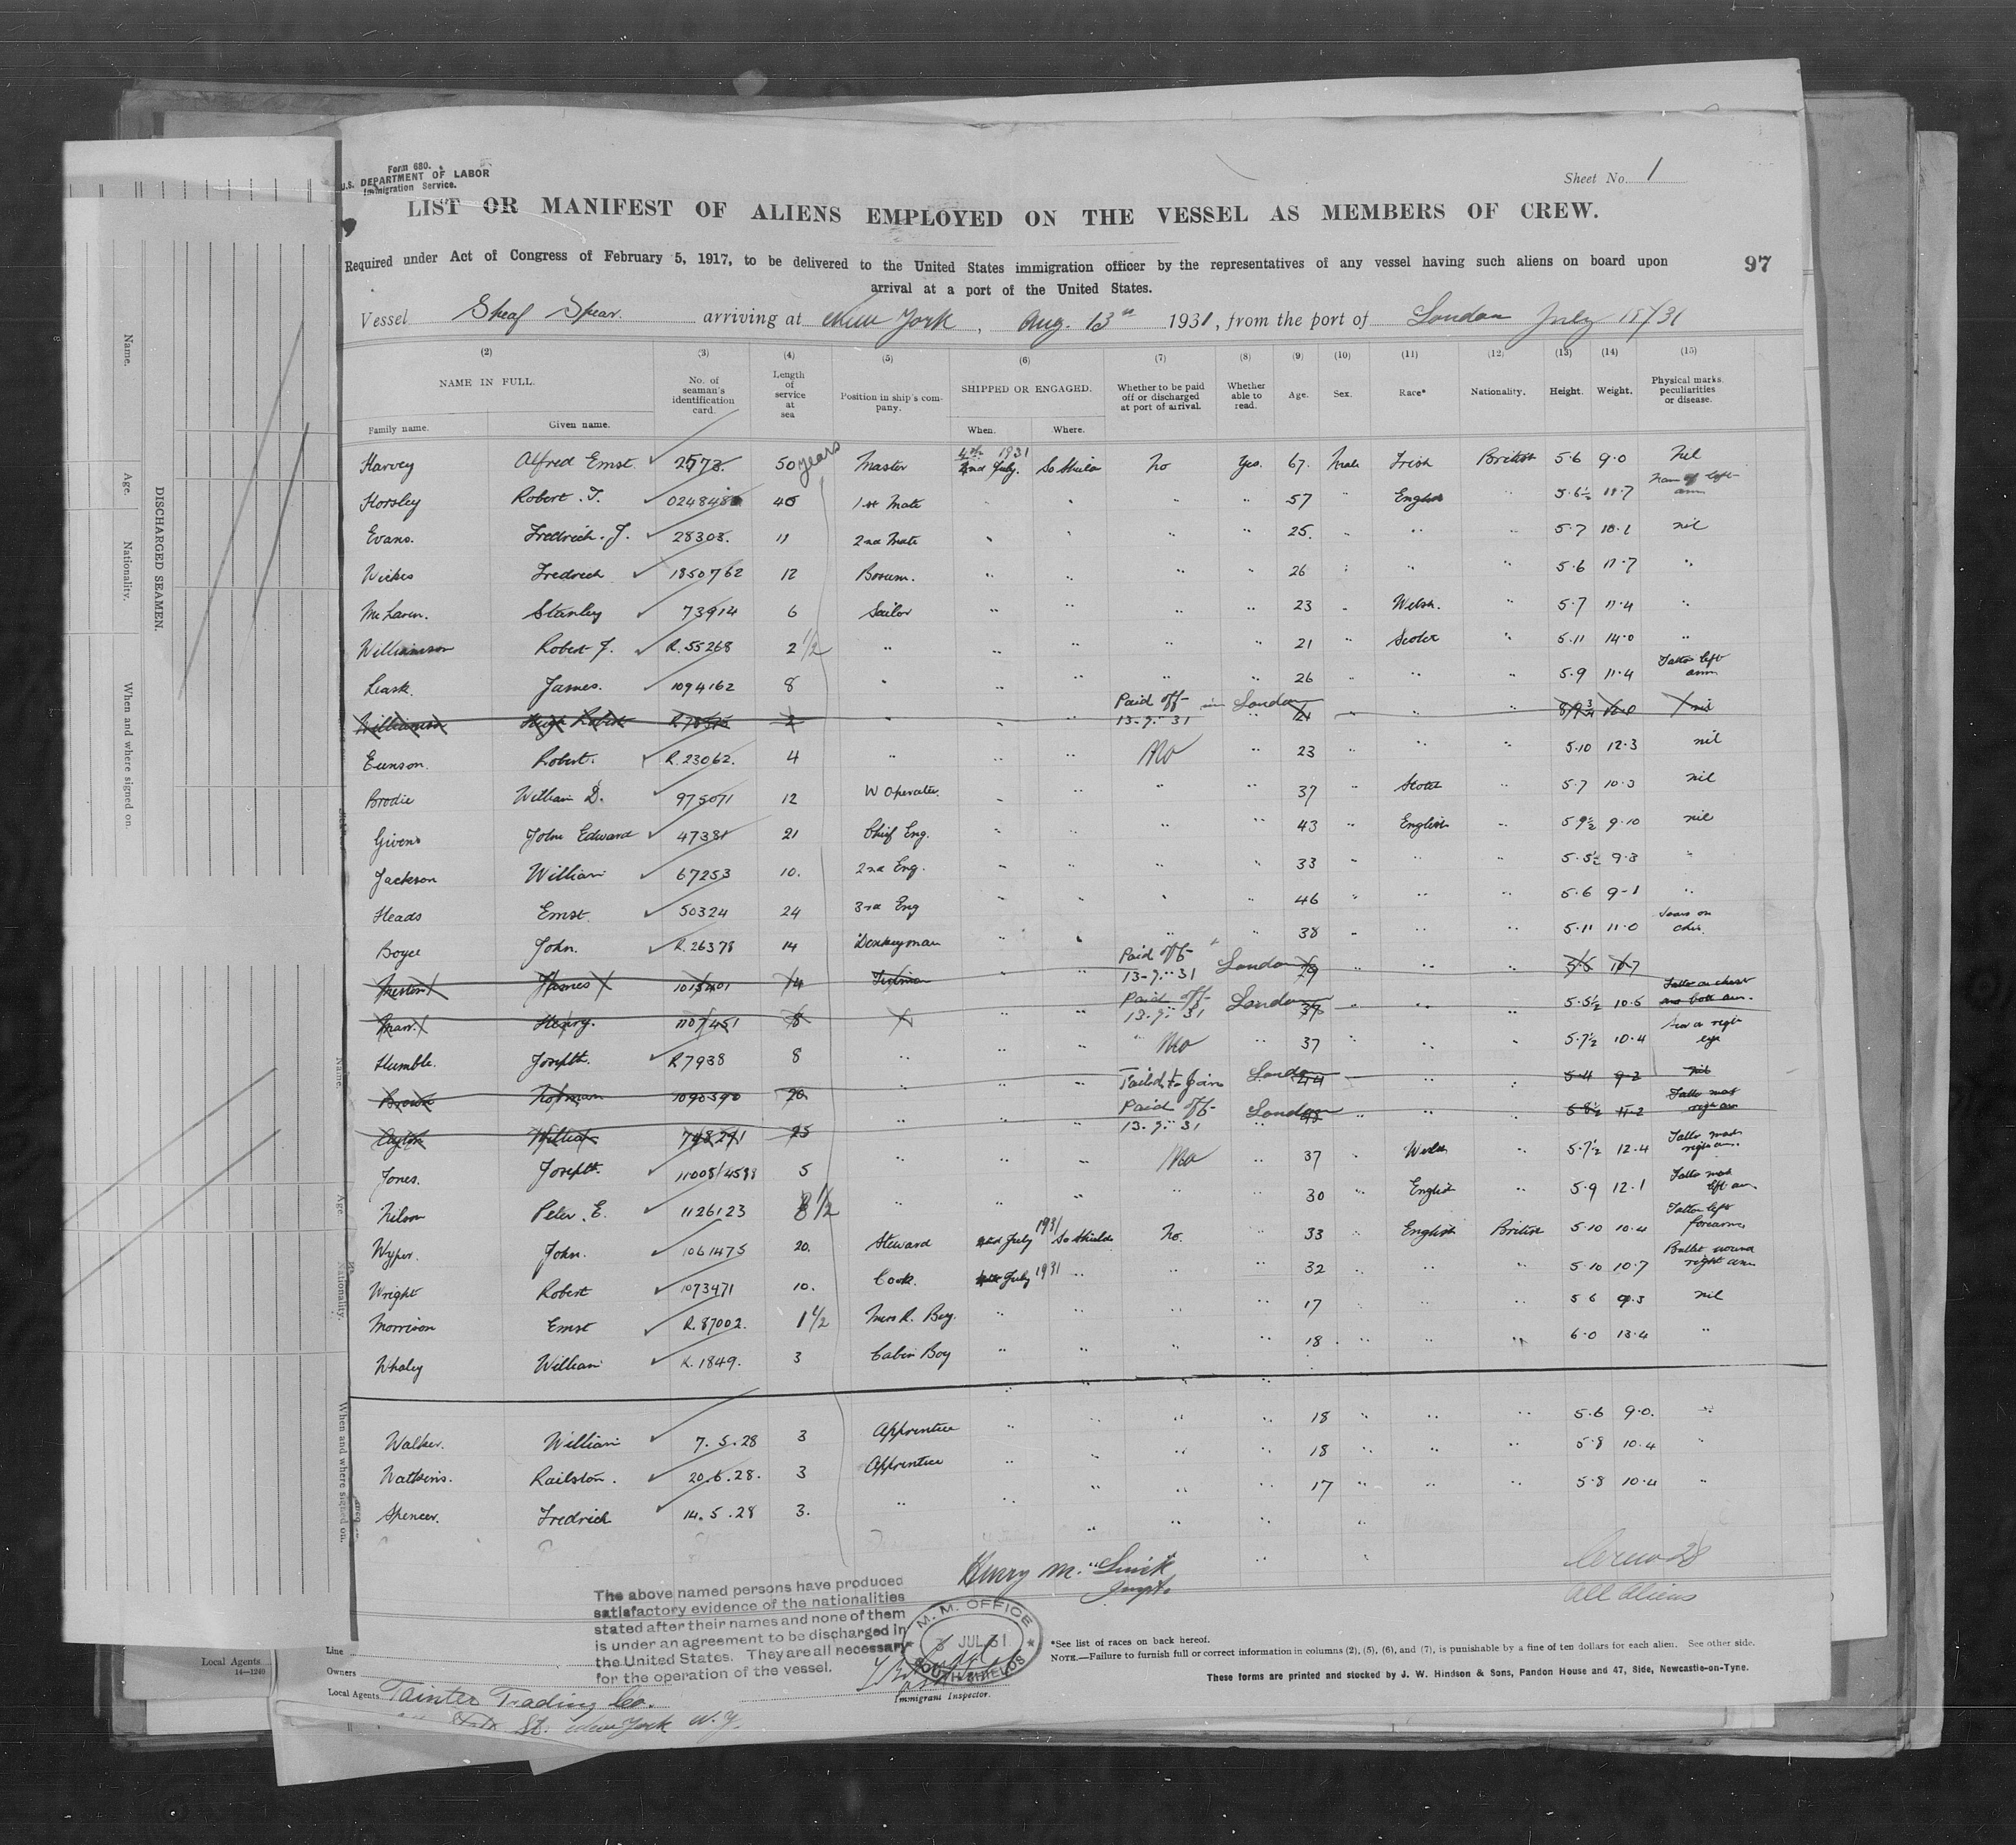 Form 680.
U.S. DEPARTMENT OF LABOR
Immigration Service.
Sheet No. 1
LIST OR MANIFEST OF ALIENS EMPLOYED ON THE VESSEL AS MEMBERS OF CREW.
Required under Act of Congress of February 5, 1917, to be delivered to the United States immigration officer by the representatives of any vessel having such aliens on board upon
arrival at a port of the United States.
97
Vessel Sheaf Spear arriving at New York, Aug. 13th 1931, from the port of London July 18/31
(2) (3) (4) (5) (6) (7) (8) (9) (10) (11) (12) (13) (14) (15)
NAME IN FULL. No. of seaman's identification card. Length of service at sea Position in ship's company. SHIPPED OR ENGAGED. Whether to be paid off or discharged at port of arrival. Whether able to read. Age. Sex. Race* Nationality. Height. Weight. Physical marks, peculiarities or disease.
Family name. Given name. When. Where.
Harvey Alfred Ernst 2573. 50 years Master 4th 1931 2nd July. So Shields No Yes. 67. Male Irish British 5.6 9.0 Nil
Horsley Robert. T. 40 1st Mate " " " " 57 " English " 5.6½ 11.7 left arm
Evans. Fredrick. J. 28303. 11 2nd Mate " " " " 25. " " " 5.7 10.1 nil
Wickes Fredrick 1850762 12 Bosum. " " " " 26 " " " 5.6 11.7 "
McLaren. Stanley 73914 6 Sailor " " " " 23 " Welsh. " 5.7 11.4 "
Williamson Robert J. R.55268 2½ " " " " " 21 " Scotch " 5.11 14.0 "
Leask. James. 1094162 8 " " " " " 26 " " " 5.9 11.4 Tattoo left arm
Williamson Hugh Robert 2 " " " Paid off in London 13.7.31 " 21 " " " 12.0 nil
Eunson. Robert. R.23062. 4 " " " No " 23 " " " 5.10 12.3 nil
Brodie William D. 975071 12 W Operator. " " " " 37 " Scotch " 5.7 10.3 nil
Givens John Edward 47381 21 Chief Eng. " " " " 43 " English " 5 9½ 9.10 nil
Jackson William 67253 10. 2nd Eng. " " " " 33 " " " 5.5½ 9.3 "
Heads Ernst. 50324 24 3rd Eng " " " " 46 " " " 5.6 9-1 "
Boyce John. R.26378 14 Donkeyman " " " " 38 " " " 5.11 11.0 Scars on chin.
James 14 Fireman " " Paid off 13-7-31 London 29 " " " 5.5 10.7
Henry. 1107451 8 " " " Paid off 13.7.31 London 37 " " " 5.5½ 10.5 Tattoo on chest and both arm.
Humble. Joseph. R7938 8 " " " No " 37 " " " 5.7½ 10.4 eye
Brown Norman 1090390 20 " " " Failed to join London 44 " " " 5.4 9.2 nil
William 748291 25 " " " Paid off 13.7.31 London " " " 5 8½ 11.2 Tattoo mark right arm
Jones. Joseph. 11008/4588 5 " " " No " 37 " Welsh " 5.7½ 12.4 Tattoo mark right arm.
Nilson Peter. E. 1126123 8½ " " " " " 30 " English " 5.9 12.1 Tattoo mark left arm.
Wyper. John. 1061475 20. Steward 2nd July 1931 So Shields No. " 33 " English British 5.10 10.4 Tattoo left forearm
Wright Robert 1073471 10. Cook. July 1931 " " " 32 " " " 5.10 10.7 Bullet wound right arm
Morrison Ernst R.87002. 1½ Mess R. Boy. " " " " 17 " " " 5 6 9.3 nil
Whaley William R.1849. 3 Cabin Boy " " " " 18 " " " 6.0 13.4 "
Walker. William 7.5.28 3 Apprentice " " " " 18 " " " 5.6 9.0. "
Watkins. Railston. 20.6.28. 3 Apprentice " " " " 18 " " " 5.8 10.4 "
Spencer. Fredrick 14.5.28 3. " " " " " 17 " " " 5.8 10.4 "
Crew 28
All Aliens
The above named persons have produced
satisfactory evidence of the nationalities
stated after their names and none of them
is under an agreement to be discharged in
the United States. They are all necessary
for the operation of the vessel.
M. M. OFFICE
3 JUL 31
SOUTH SHIELDS
Immigrant Inspector.
*See list of races on back hereof.
NOTE.—Failure to furnish full or correct information in columns (2), (5), (6), and (7), is punishable by a fine of ten dollars for each alien. See other side.
These forms are printed and stocked by J. W. Hindson & Sons, Pandon House and 47, Side, Newcastle-on-Tyne.
Line
Owners
Local Agents Tainter Trading Co.
St. New York N.Y.
Local Agents
14—1240
DISCHARGED SEAMEN.
Name. Age. Nationality. When and where signed on.
Name. Age. Nationality. When and where signed on.